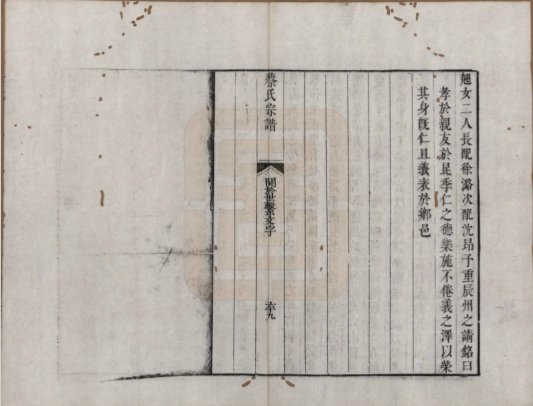 翹女二人長配徐潞次配沈昂予重辰州之請銘曰
孝於親友於昆季仁之德樂施不倦義之澤以榮
其身旣仁且義表於鄉邑
蔡氏宗譜
關於世繫文字
六九